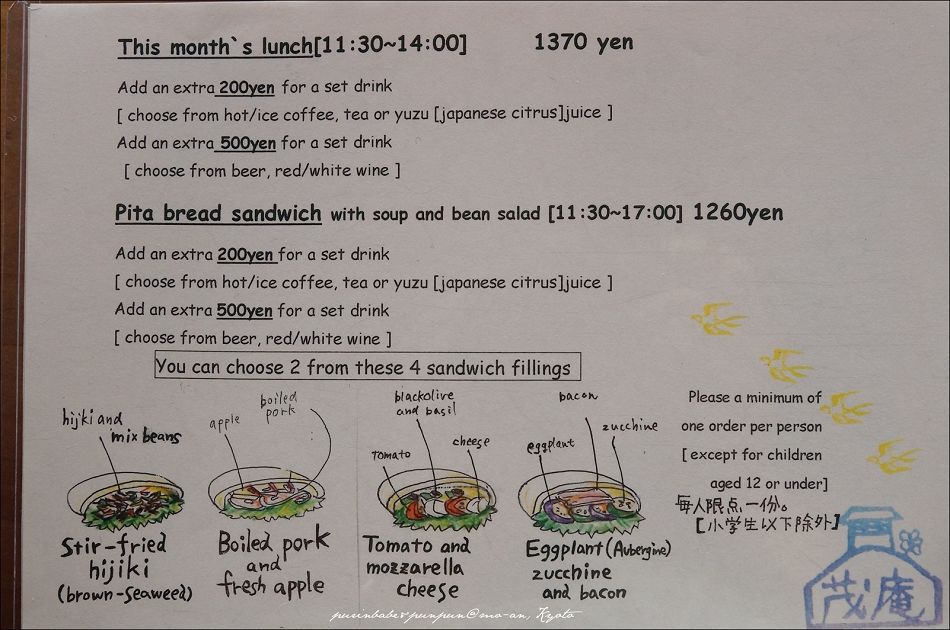 This month`s lunch[11:30~14:00] 1370 yen
Add an extra 200yen for a set drink
[ choose from hot/ice coffee, tea or yuzu [japanese citrus]juice ]
Add an extra 500yen for a set drink
[ choose from beer, red/white wine ]
Pita bread sandwich with soup and bean salad [11:30~17:00] 1260yen
Add an extra 200yen for a set drink
[ choose from hot/ice coffee, tea or yuzu [japanese citrus]juice ]
Add an extra 500yen for a set drink
[ choose from beer, red/white wine ]
You can choose 2 from these 4 sandwich fillings
hijiki and
mix beans
Stir-fried
hijiki
(brown-seaweed)
apple
boiled
pork
Boiled pork
and
fresh apple
Tomato
blackolive
and basil
cheese
Tomato and
mozzarella
cheese
eggplant
bacon
zucchine
Eggplant (Aubergine)
zucchine
and bacon
Please a minimum of
one order per person
[ except for children
aged 12 or under]
每人限点一份。
[小学生以下除外]
茂庵
purinbabe&punpun@mo-an, Kyoto